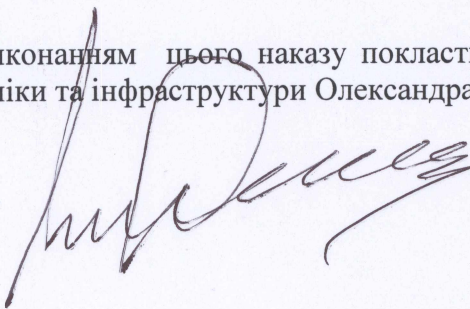 иконанням цього наказу покласти
ніки та інфраструктури Олександра